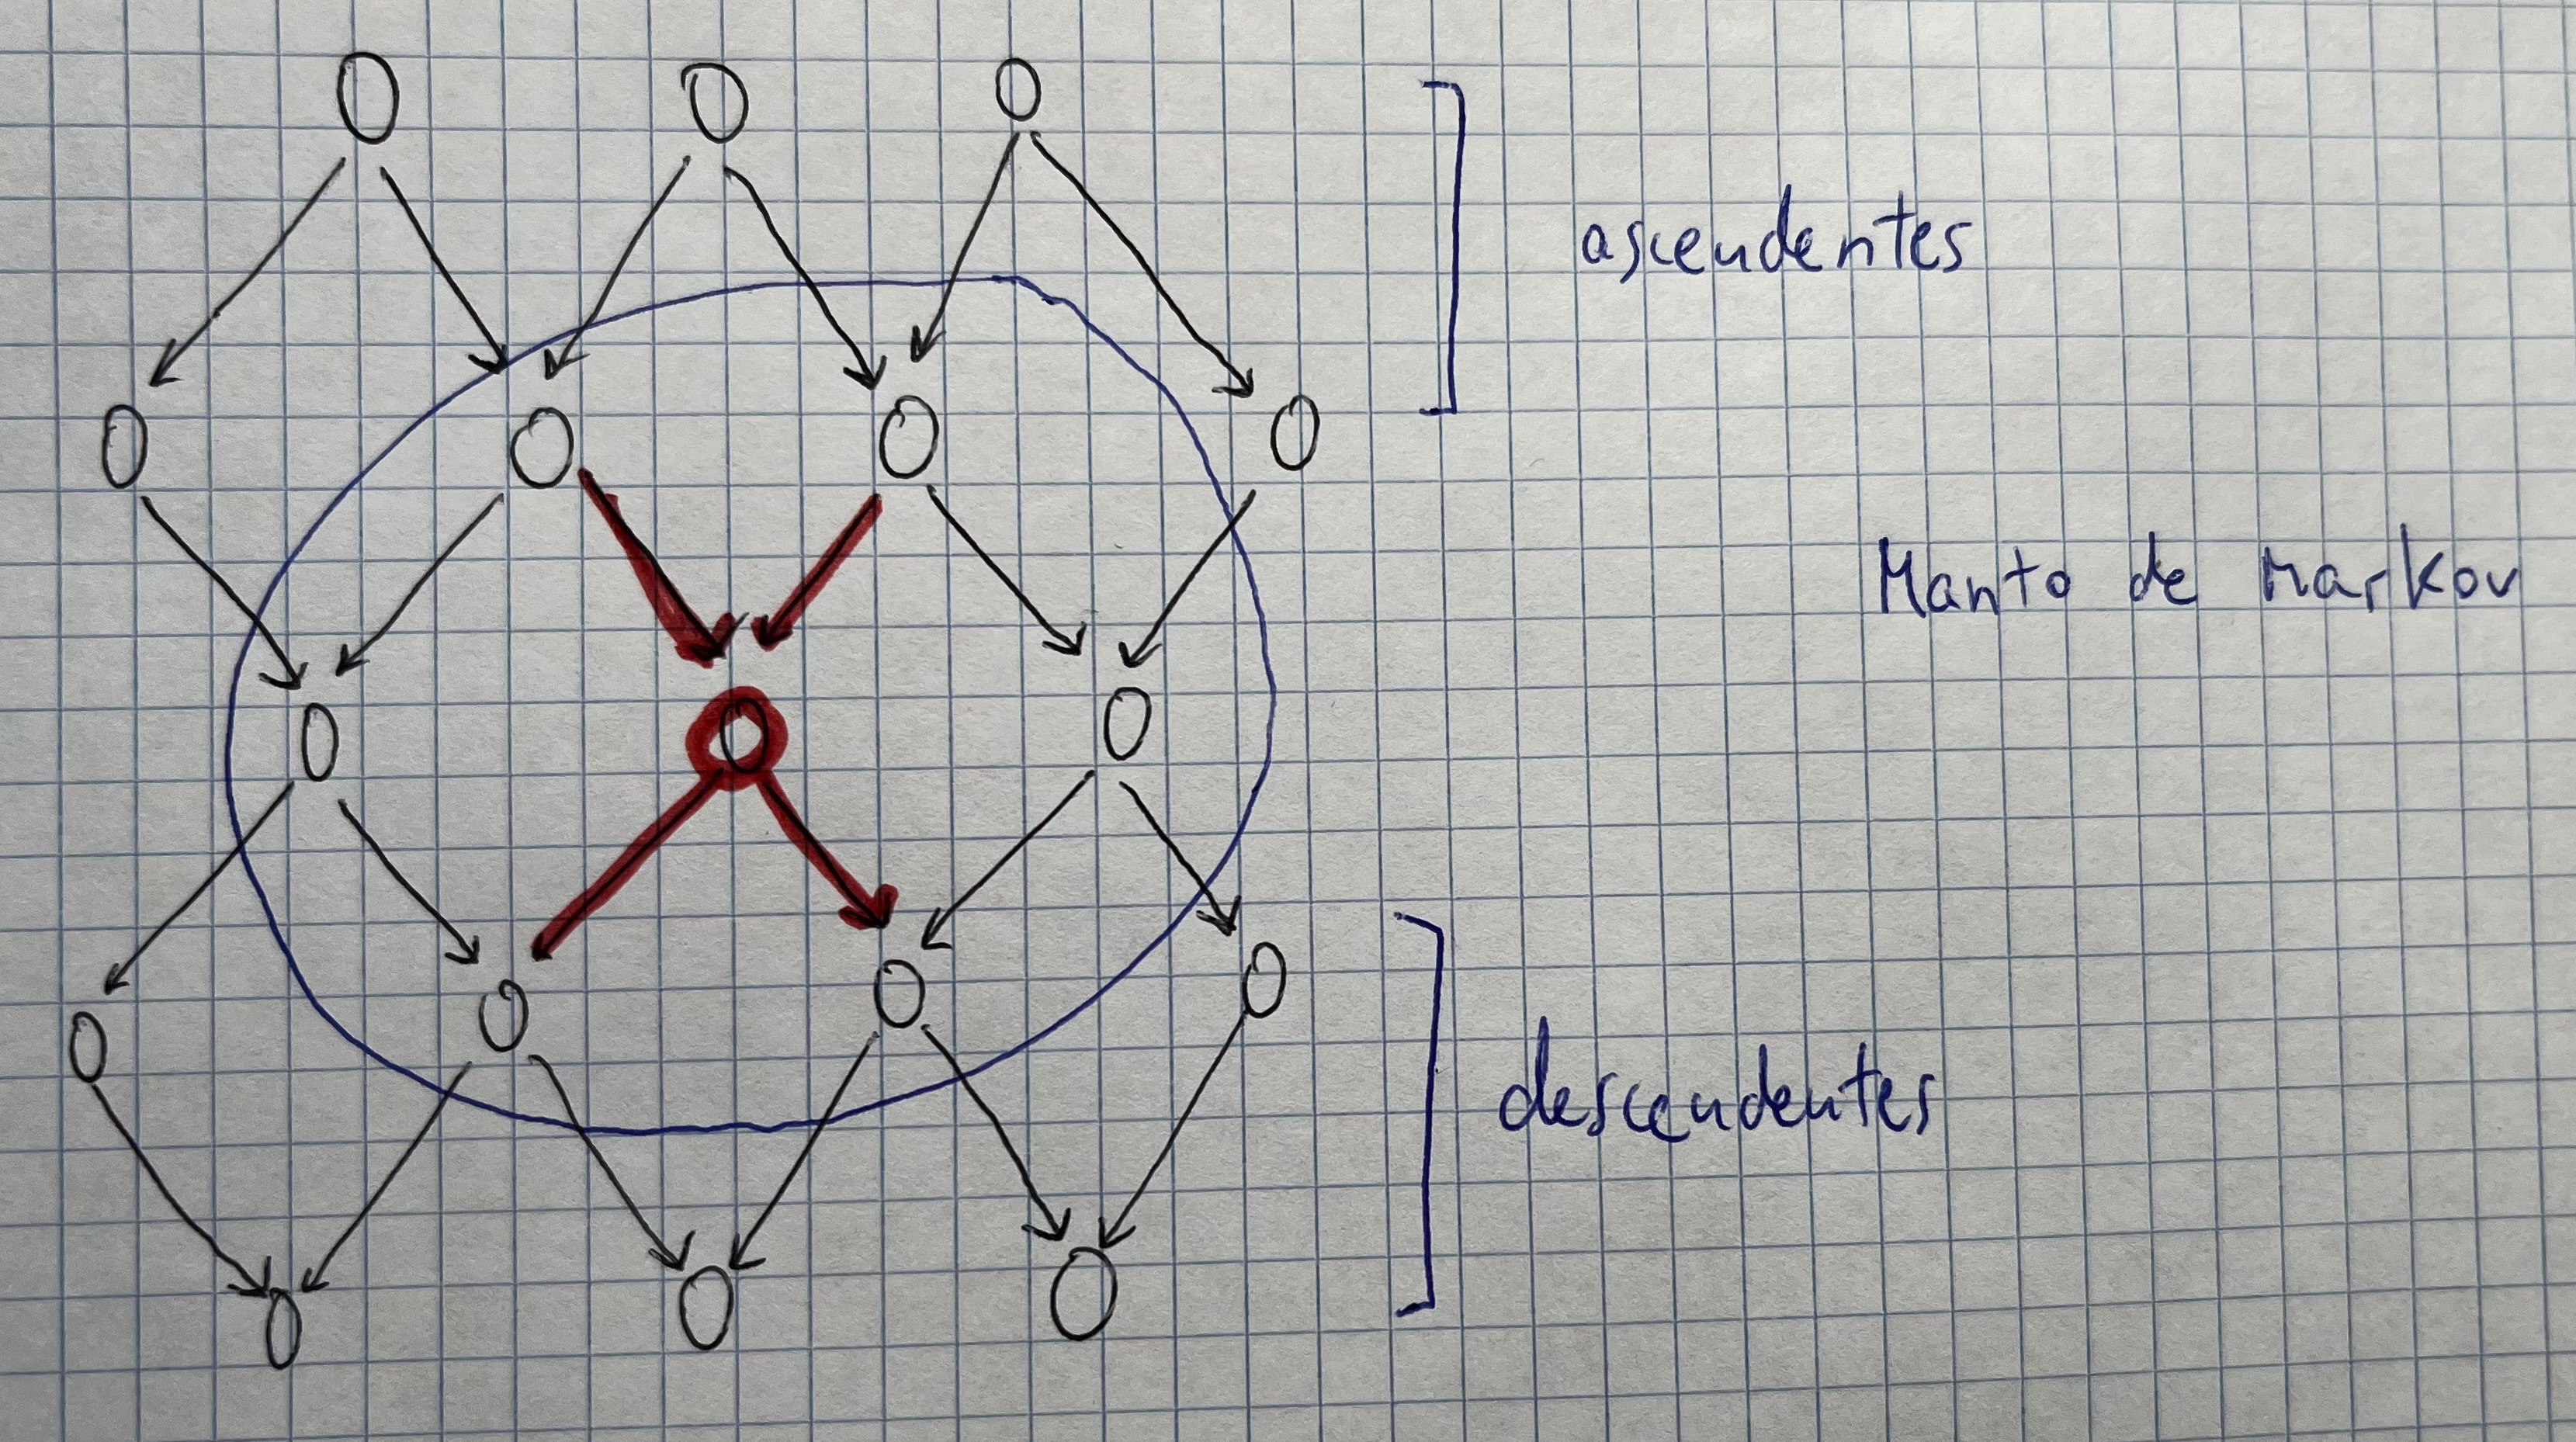 ascendentes
Manto de Markov
descendentes